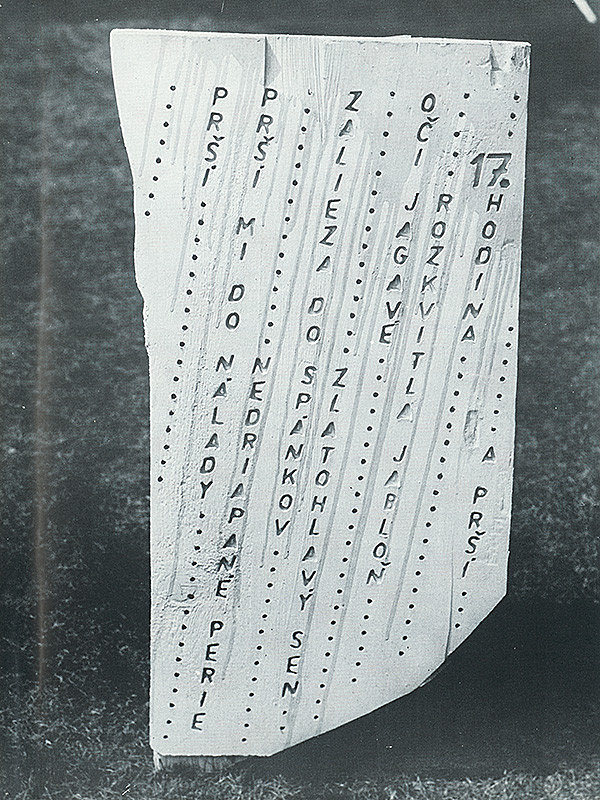 PRŠÍ
PRŠÍ MI DO NÁLADY
NEDRIAPANÉ PERIE
ZALIEZA DO SPÁNKOV
ZLATOHLAVÝ SEN
OČI JAGAVÉ
ROZKVITLA JABLOŇ
17. HODINA
A PRŠÍ